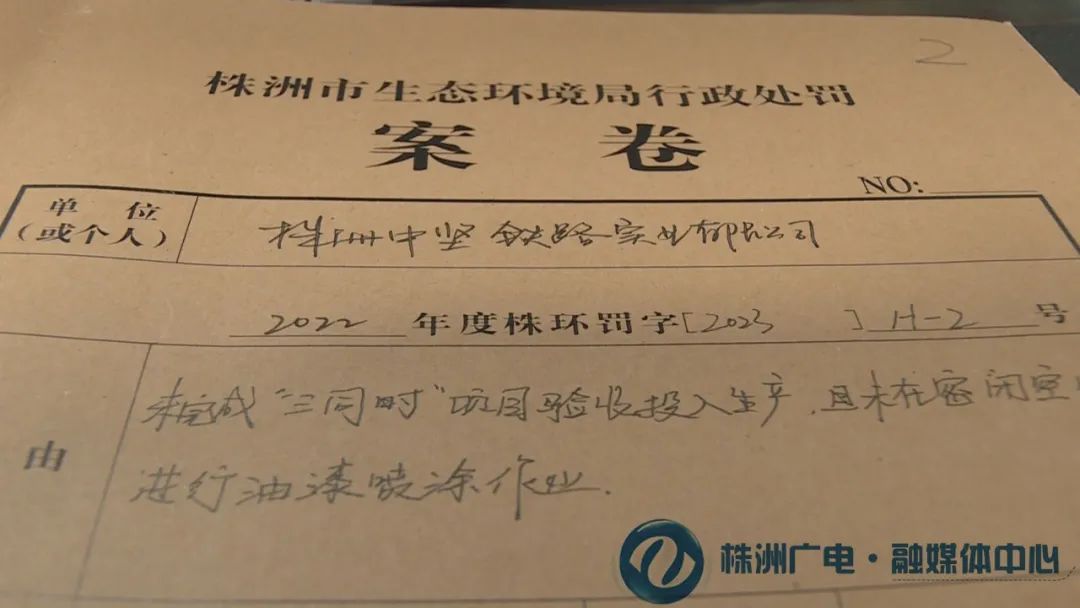 2
株洲市生态环境局行政处罚
案 卷
NO:
单 位
（或个人）
株洲中坚铁路实业有限公司
2022 年度株环罚字[2023 ] H-2 号
由
未完成“三同时”项目验收投入生产，且未在密闭空
进行油漆喷涂作业.
株洲广电·融媒体中心